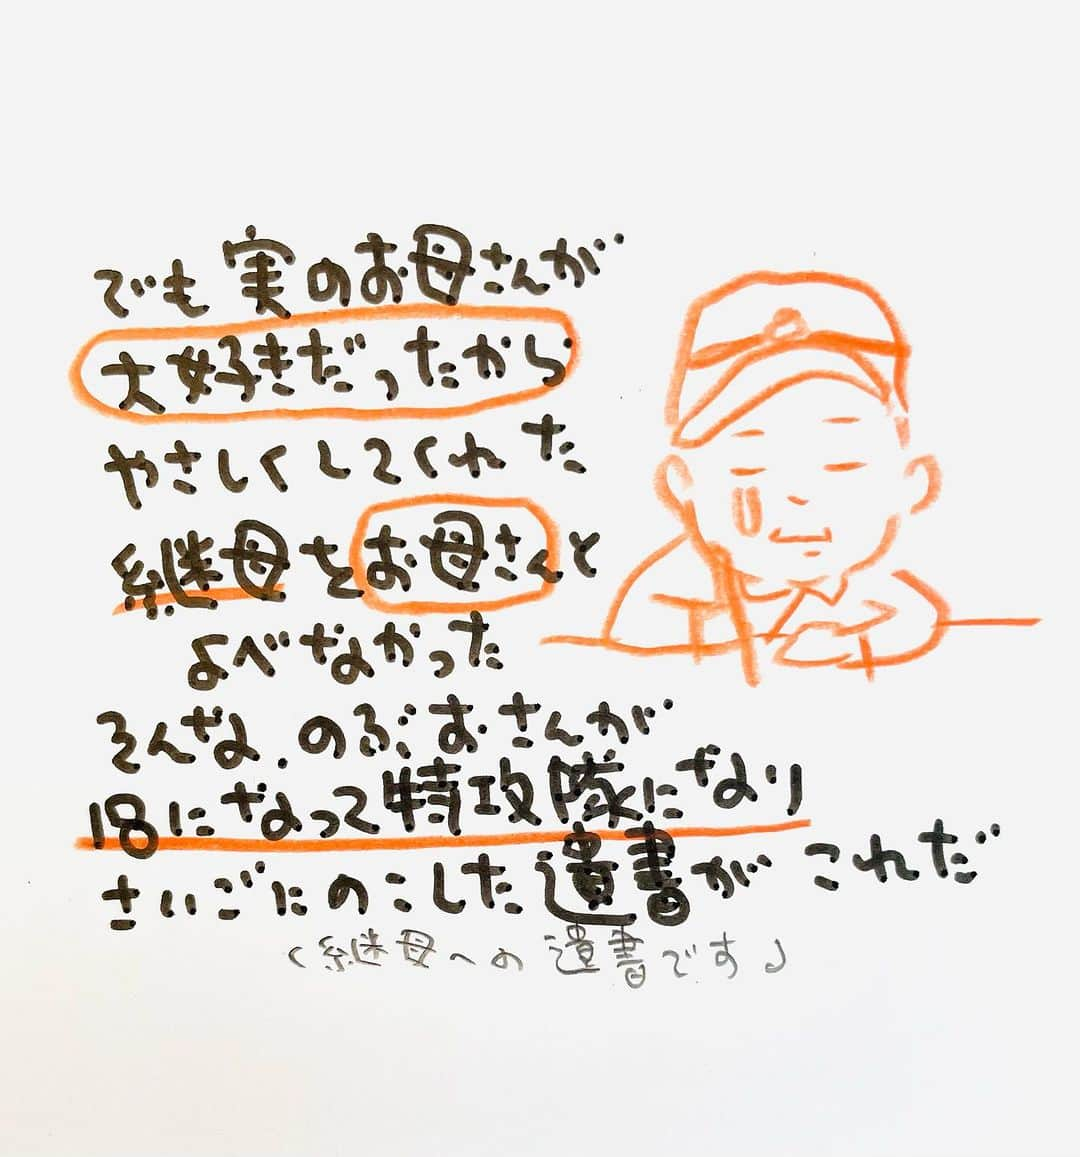 でも実のお母さんが
大好きだったから
やさしくしてくれた
継母をお母さんと
よべなかった
そんな.のぶおさんが
18になって特攻隊になり
さいごにのこした遺書がこれだ
(継母への遺書です)